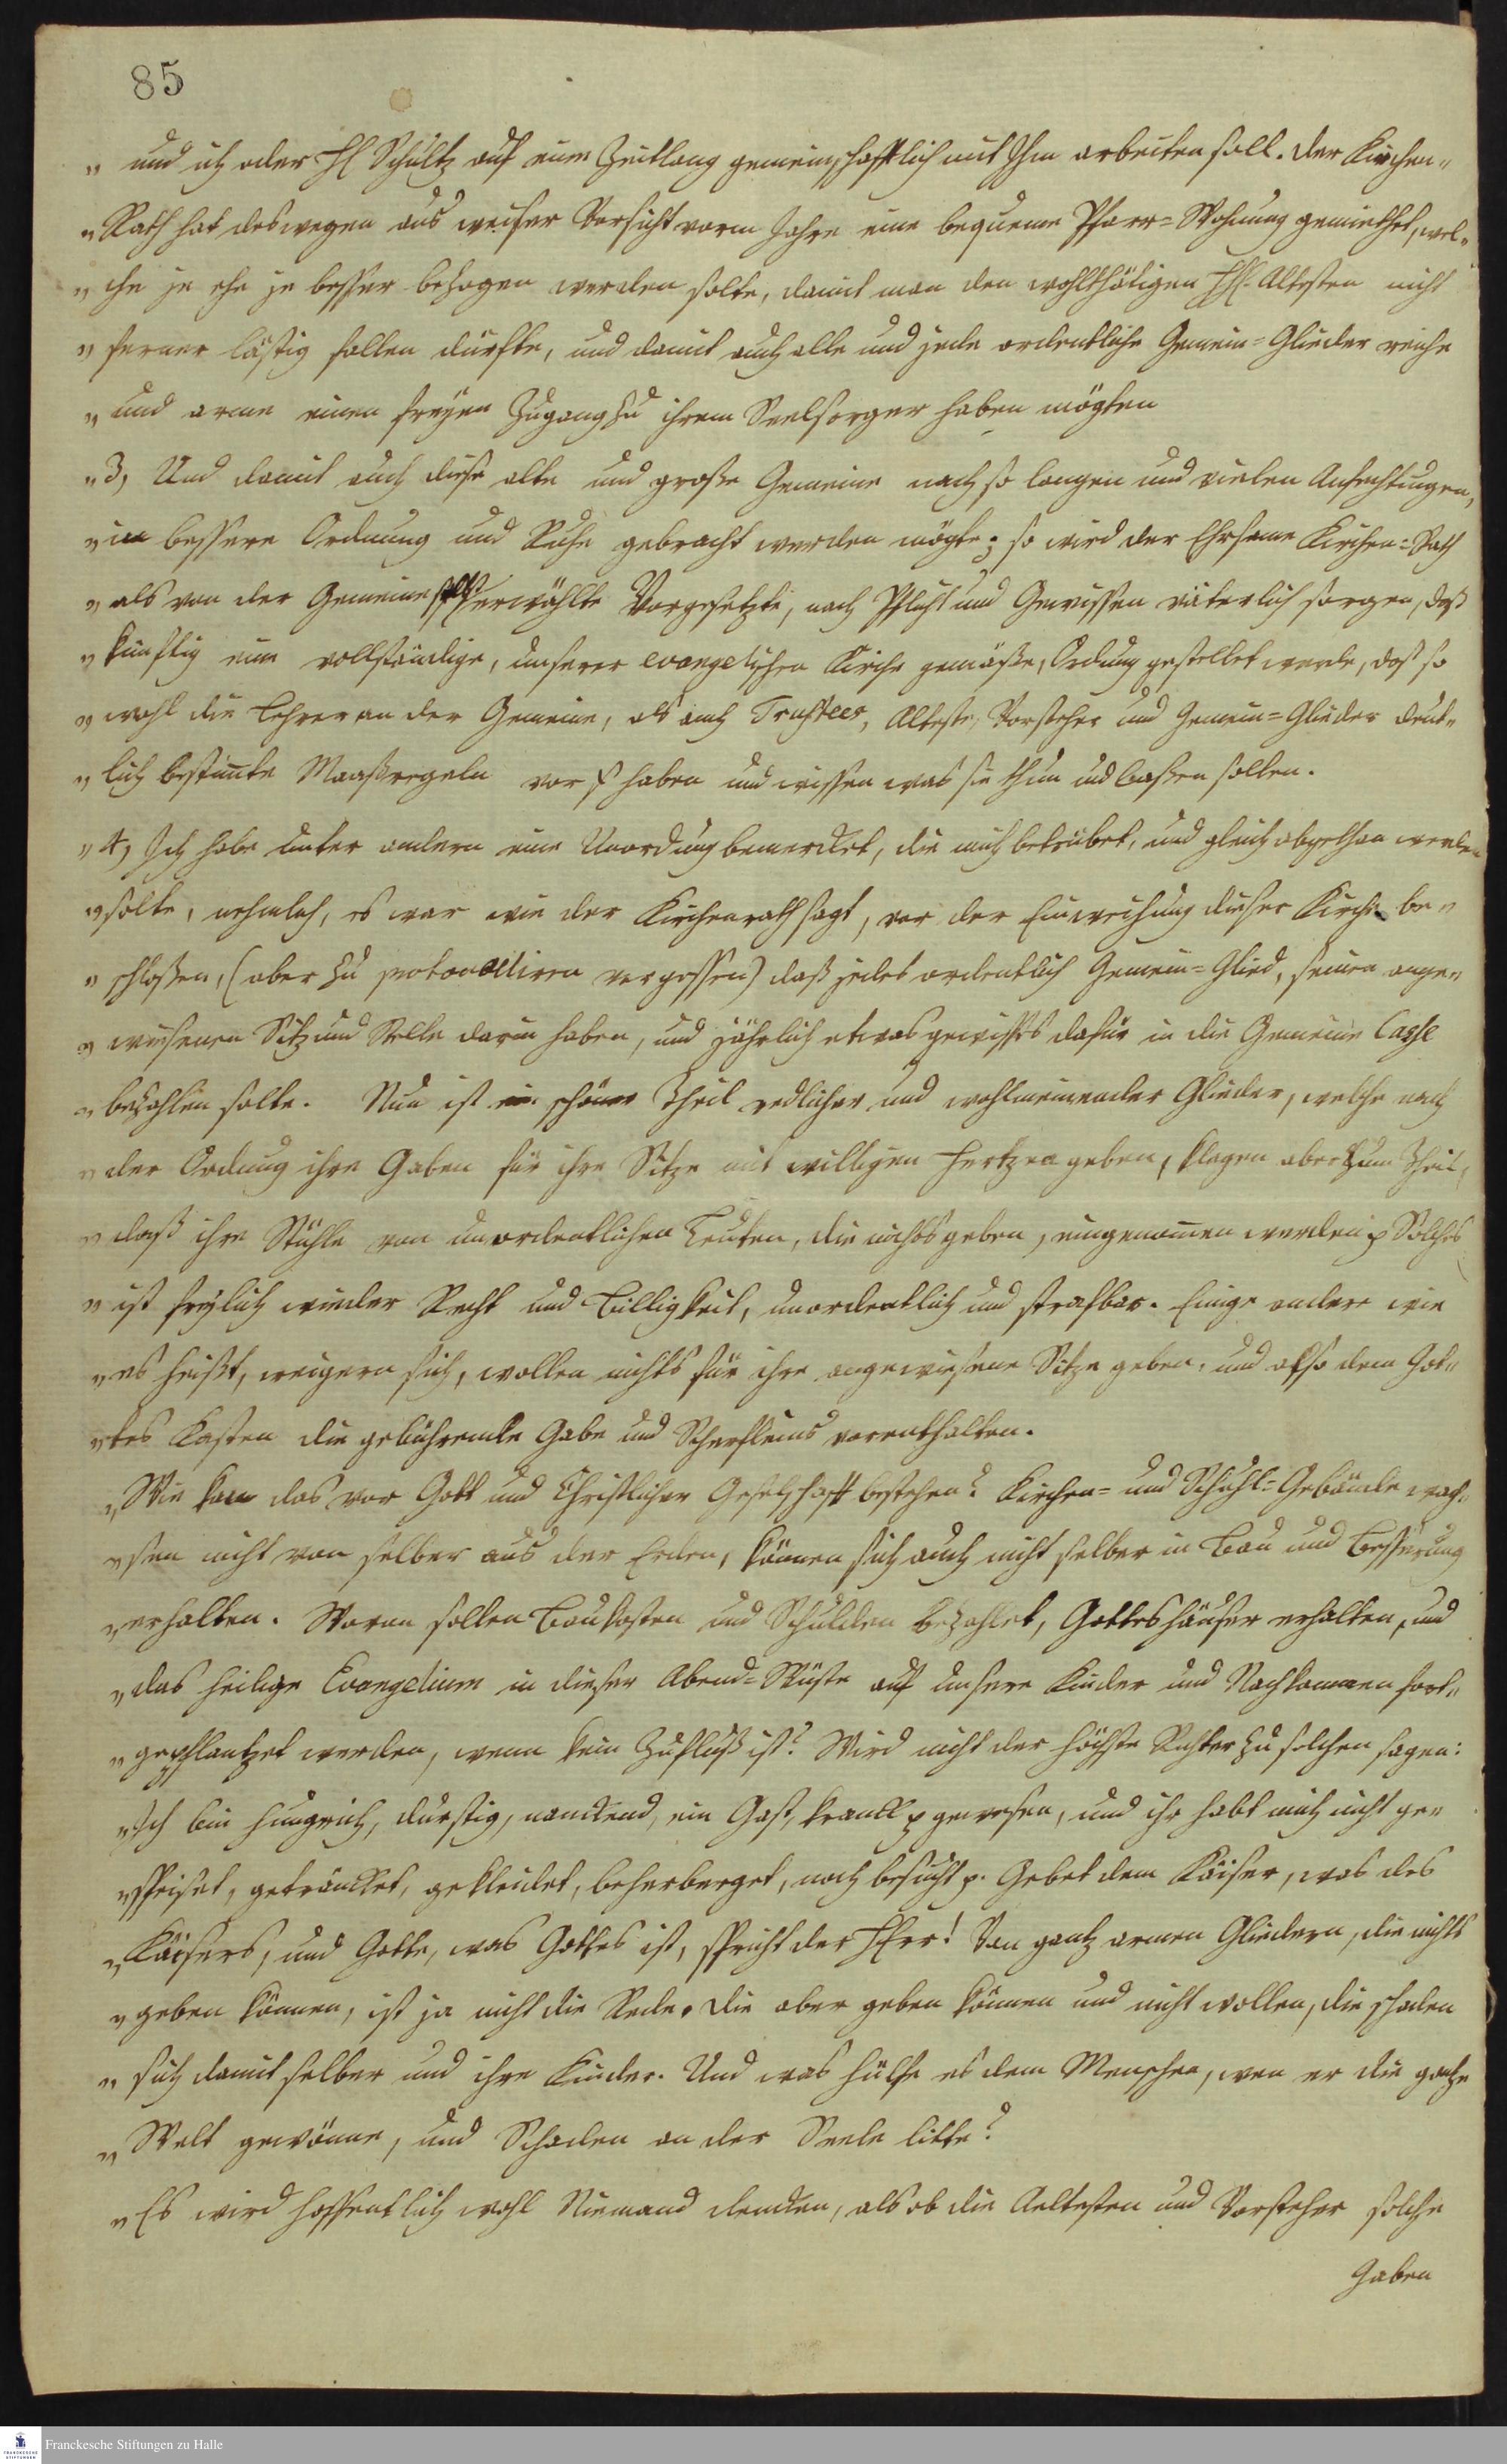 85
„ und ich oder H Schultz auf eine Zeitlang gemeinschafftlich mit Ihm arbeiten soll. Der Kirchen„
„ Rath hat deswegen aus weiser Vorsicht vorm Jahre eine bequeme Pfarr=Wohnung gemiethet, wel„
„ che je ehe je besser bezogen werden solte, damit man den wohlthätigen HH. Altesten nicht
„ ferner lästig fallen dürfte, und damit auch alle und jede ordentliche Gemein=Glieder reiche
„ und arme einen freÿen Zugang zu ihrem Seelsorger haben mögten
„ 3, Und damit auch diese alte und große Gemeine nach so langen und vielen Anfechtungen,
„ in bessere Ordnung und Ruhe gebracht werden mögte; so wird der Ehrsame Kirchen=Rath
„ als von der Gemeine selbst erwählte Vorgesetzte, nach Pflicht und Gewissen väterlich sorgen, daß
„ künftig eine vollständige, unserer evangelischen Kirche gemäße, Ordnung gestellet werde, daß so
„ wohl die Lehrer an der Gemeine, als auch Trustees, Alteste, Vorsteher und Gemein=Glieder deut„
„ lich bestimte Maaßregeln vor sich haben und wissen was sie thun und laßen sollen.
„ 4, Ich habe unter andern eine Unordnung bemercket, die mich betrübet, und gleich abgethan werden
„ solte, nehmlich, es war wie der Kirchenrath sagt, vor der Einweihung dieser Kirche be„
„ schloßen, (aber zu protocolliren vergessen) daß jedes ordentlich Gemein=Glied, seinen ange„
„ wiesenen Sitz und Stelle darin haben, und jährlich etwas gewißes dafür in die Gemeine Casse
„ bezahlen solte. Nun ist ein schöner Theil redlicher und wohlmeinender Glieder, welche nach
„ der Ordnung ihre Gaben für ihre Sitze mit willigen Hertzen geben, klagen aber zum Theil,
„ daß ihre Stühle von unordentlichen Leuten, die nichts geben, eingenommen werden p Solches
„ ist freÿlich wieder Recht und Billigkeit, unordentlich und strafbar. Einige andere wie
„ es heißt, weigern sich, wollen nichts für ihre angewiesene Sitze geben, und also dem Got„
„ tes Kasten die gebührende Gabe und Scherfleins vorenthalten.
„ Wie kan das vor Gott und Christlicher Geselschaft bestehen? Kirchen= und Schuhl=Gebäude wach„
„ sen nicht von selber aus der Erden, können sich auch nicht selber in Bau und Besserung
„ erhalten. Wovon sollen Baukosten und Schulden bezahlet, Gotteshäuser erhalten, und
„ das heilige Evangelium in dieser Abend=Wüste auf unsere Kinder und Nachkommen fort„
„ gepflantzet werden, wenn kein Zufluß ist? Wird nicht der höchste Richter zu solchen sagen:
„ Ich bin hungrich, durstig, nackend, ein Gast, kranck p gewesen, und ihr habt mich nicht ge„
„ speiset, geträncket, gekleidet, beherberget, noch besucht p. Gebet dem Käiser, was des
„ Käisers, und Gotte, was Gottes ist, spricht der HErr! Von gantz armen Gliedern, die nichts
„ geben können, ist ja nicht die Rede. Die aber geben können und nicht wollen, die schaden
„ sich damit selber und ihre Kinder. Und was hülfe es dem Menschen, wen er die gantze
„ Welt gewönne, und Schaden an der Seele litte?
„ Es wird hoffentlich wohl Niemand dencken, als ob die Aeltesten und Vorsteher solche
Gaben
FRANCKESCHE STIFTUNGEN
Franckesche Stiftungen zu Halle